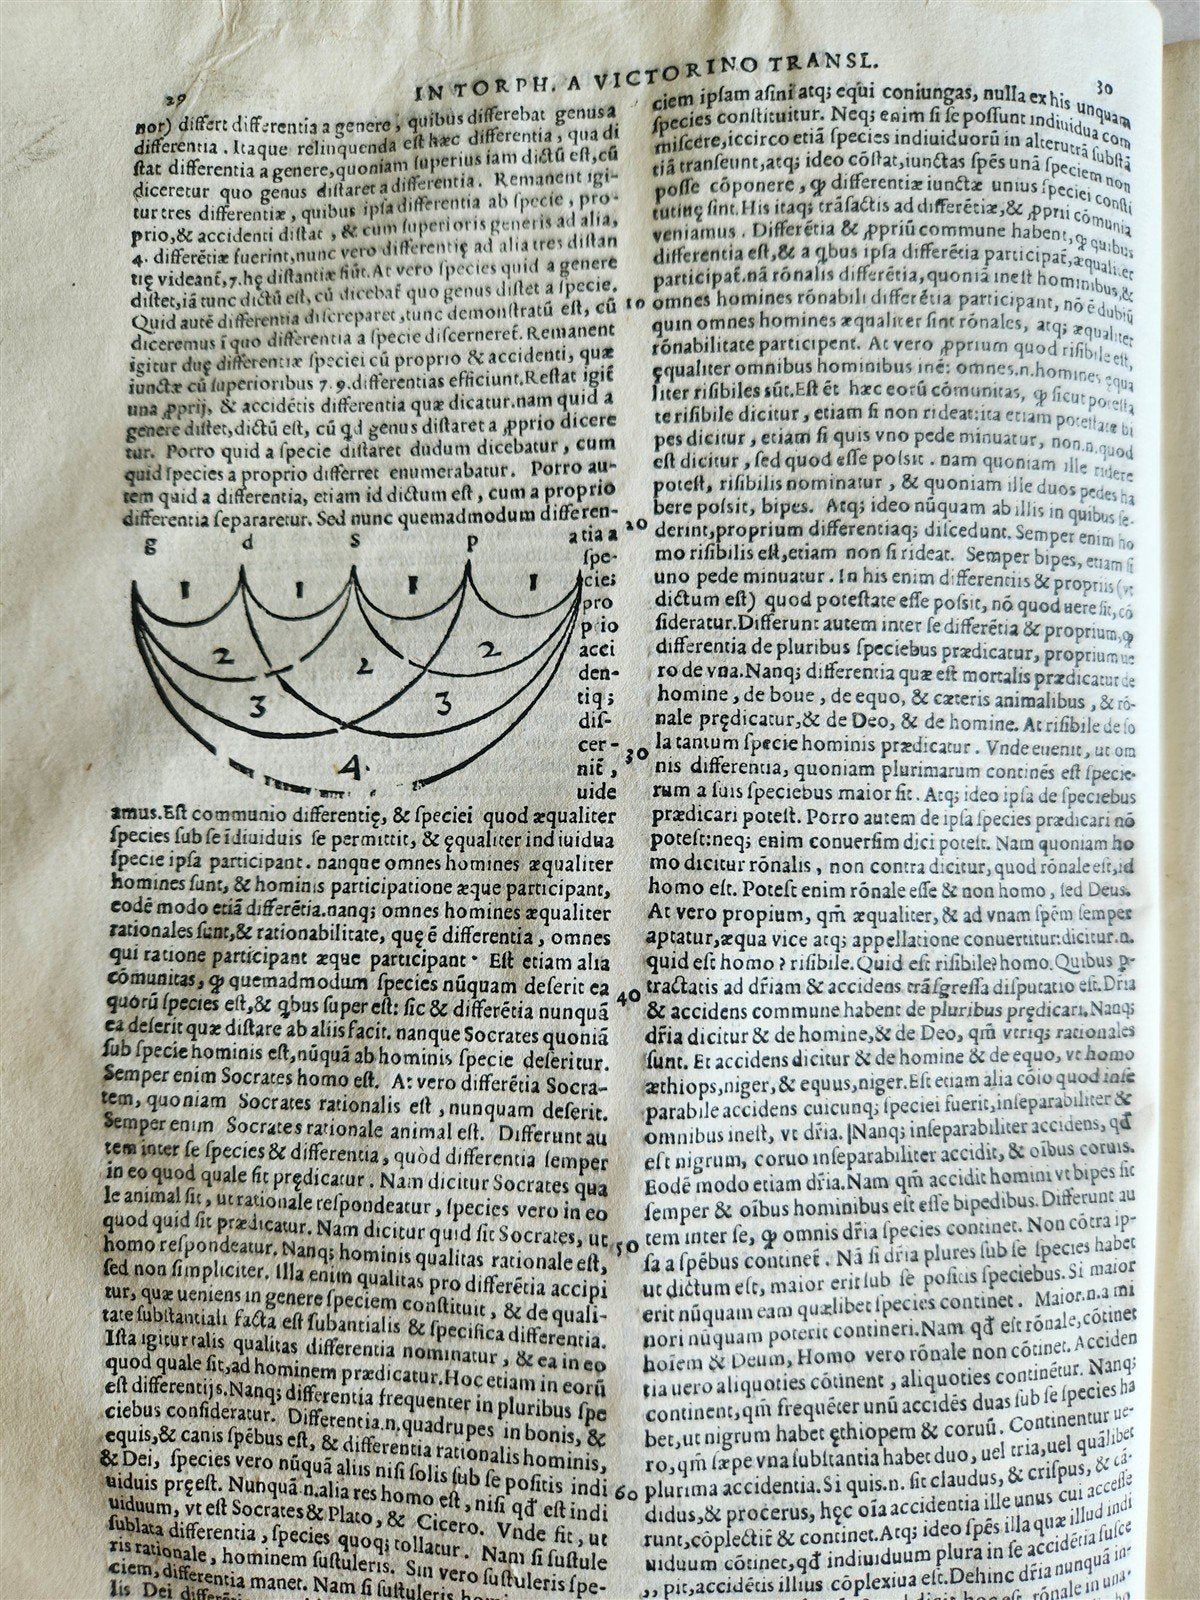 29 IN TORPH. A VICTORINO TRANSL. 30
nor) differt differentia a genere, quibus differebat genus a
differentia. Itaque relinquenda est hæc differentia, qua di
stat differentia a genere, quoniam superius iam dictũ est, cũ
diceretur quo genus distaret a differentia. Remanent igi-
tur tres differentiæ, quibus ipsa differentia ab specie, pro-
prio, & accidenti distat, & cum superioris generis ad alia,
4. differẽtiæ fuerint, nunc vero differentię ad alia tres distan
tię videant̃, 7. hę distantiæ fiũt. At vero species quid a genere
distet, iã tunc dictũ est, cũ dicebat̃ quo genus distet a specie.
Quid autẽ differentia discreparet, tunc demonstratũ est, cũ
diceremus ĩ quo differentia a specie discerneret̃. Remanent
igitur duę differentiæ speciei cũ proprio & accidenti, quæ
iunctæ cũ superioribus 7. 9. differentias efficiunt. Restat igit̃
una ꝓprij, & accidẽtis differentia quæ dicatur. nam quid a
genere distet, dictũ est, cũ qd genus distaret a ꝓprio dicere
tur. Porro quid a specie distaret dudum dicebatur, cum
quid species a proprio differret enumerabatur. Porro au-
tem quid a differentia, etiam id dictum est, cum a proprio
differentia separaretur. Sed nunc quemadmodum differen-
g d s p a tia a
spe-
1 1 1 1 cie;
pro
prio
2 2 2 acci
den-
3 3 tiq;
dis-
cer-
4. nit̃,
uide
amus. Est communio differentię, & speciei quod æqualiter
species sub se ĩdiuiduis se permittit, & ęqualiter indiuidua
specie ipsa participant. nanque omnes homines æqualiter
homines sunt, & hominis participatione æque participant,
eodẽ modo etiã differẽtia. nanq; omnes homines æqualiter
rationales sunt, & rationabilitate, quę ẽ differentia, omnes
qui ratione participant æque participant. Est etiam alia
cõmunitas, ꝙ quemadmodum species nũquam deserit ea
quorũ species est, & qbus super est: sic & differẽtia nunquã
ea deserit quæ distare ab aliis facit. nanque Socrates quoniã
sub specie hominis est, nũquã ab hominis specie deseritur.
Semper enim Socrates homo est. At vero differẽtia Socra-
tem, quoniam Socrates rationalis est, nunquam deserit.
Semper enim Socrates rationale animal est. Differunt au
tem inter se species & differentia, quòd differentia semper
in eo quod quale sit prędicatur. Nam dicitur Socrates qua
le animal sit, ut rationale respondeatur, species vero in eo
quod quid sit prædicatur. Nam dicitur quid sit Socrates, ut
homo respondeatur. Nanq; hominis qualitas rationale est,
sed non simpliciter. Illa enim qualitas pro differẽtia accipi
tur, quæ ueniens in genere speciem constituit, & de quali-
tate substantiali facta est subantialis & specifica differentia.
Ista igitur talis qualitas differentia nominatur, & ea in eo
quod quale sit, ad hominem prædicatur. Hoc etiam in eorũ
est differentijs. Nanq; differentia frequenter in pluribus spe
ciebus consideratur. Differentia.n. quadrupes in bonis, &
equis, & canis spẽbus est, & differentia rationalis hominis,
& Dei, species vero nũquã aliis nisi solis sub se positis indi
uiduis pręest. Nunquã.n. alia res homo est, nisi qđ est indi
uiduum, vt est Socrates & Plato, & Cicero. Vnde fit, ut
sublata differentia, species quoq; tollatur. Nam si sustule
ris rationale, hominem sustuleris. Sin vero sustuleris spe-
ciem, differentia manet. Nam si sustuleris
lis Dei
10
20
30
40
50
60
ciem ipsam asini atq; equi coniungas, nulla ex his unquam
species constituitur. Neq; enim si se possunt indiuidua com
miscere, iccirco etiã species indiuiduorũ in alterutrã substã
tiã transeunt, atq; ideo cõstat, iunctas spẽs unã speciem non
posse cõponere, ꝙ differentiæ iunctæ unius speciei consti
tutiuę sint. His itaq; trãsactis ad differẽtiæ, & ꝓprii cõmunia
veniamus. Differẽtia & ꝓpriũ commune habent, ꝙ quibus
differentia est, & a qbus ipsa differẽtia participat̃, æqualiter
participat̃. nã rõnalis differẽtia, quoniã inest hominibus, &
omnes homines rõnabili differẽtia participant, nõ ẽ dubiũ
quin omnes homines æqualiter sint rõnales, atq; æqualiter
rõnabilitate participent. At vero ꝓprium quod risibile est,
ęqualiter omnibus hominibus inẽ: omnes.n. homines ęqua
liter risibiles sũt. Est ẽt hæc eorũ cõmunitas, ꝙ sicut potesta
te risibile dicitur, etiam si non rideat: ita etiam potestate bi
pes dicitur, etiam si quis vno pede minuatur, non.n. quod
est dicitur, sed quod esse possit. nam quoniam ille ridere
potest, risibilis nominatur, & quoniam ille duos pedes ha
bere possit, bipes. Atq; ideo nũquam ab illis in quibus se-
derint, proprium differentiaq; discedunt. Semper enim ho
mo risibilis est, etiam non si rideat. Semper bipes, etiam si
uno pede minuatur. In his enim differentiis & propriis (vt
dictum est) quod potestate esse possit, nõ quod uere sit, cõ
sideratur. Differunt autem inter se differẽtia & proprium, ꝙ
differentia de pluribus speciebus prædicatur, proprium ue
ro de vna. Nanq; differentia quæ est mortalis prædicatur de
homine, de boue, de equo, & cæteris animalibus, & rõ-
nale prędicatur, & de Deo, & de homine. At risibile de so
la tantum specie hominis prædicatur. Vnde euenit, ut om
nis differentia, quoniam plurimarum continẽs est specie-
rum a suis speciebus maior sit. Atq; ideo ipsa de speciebus
prædicari potest. Porro autem de ipsa species prædicari nõ
potest: neq; enim conuersim dici potest. Nam quoniam ho
mo dicitur rõnalis, non contra dicitur, quod rõnale est, id
homo est. Potest enim rõnale esse & non homo, sed Deus.
At vero propium, qm̃ æqualiter, & ad vnam spẽm semper
aptatur, æqua vice atq; appellatione conuertitur: dicitur.n.
quid est homo? risibile. Quid est risibile? homo. Quibus p-
tractatis ad dr̃iam & accidens trãsgressa disputatio est. Dr̃ia
& accidens commune habent de pluribus prędicari. Nanq;
dr̃ia dicitur & de homine, & de Deo, qm̃ vtriq; rationales
sunt. Et accidens dicitur & de homine & de equo, vt homo
æthiops, niger, & equus, niger. Est etiam alia cõio quod inse
parabile accidens cuicunq; speciei fuerit, inseparabiliter &
omnibus inest, vt dr̃ia. Nanq; inseparabiliter accidens, qđ
est nigrum, coruo inseparabiliter accidit, & oĩbus coruis.
Eodẽ modo etiam dr̃ia. Nam qm̃ accidit homini vt bipes sit
semper & oĩbus hominibus est esse bipedibus. Differunt au
tem inter se, ꝙ omnis dr̃ia species continet. Non cõtra ip-
sa a spẽbus continet̃. Nã si dr̃ia plures sub se species habet
ut dictum est, maior erit sub se positis speciebus. Si maior
erit nũquam eam quælibet species continet. Maior.n. a mi
nori nũquam poterit contineri. Nam qđ est rõnale, cõtinet
hoĩem & Deum, Homo vero rõnale non cõtinet. Acciden
tia uero aliquoties cõtinent, aliquoties continẽtur. Nanq;
continent, qm̃ frequẽter unũ accidẽs duas sub se species ha
bet, ut nigrum habet ęthiopem & coruũ. Continentur ue-
ro, qm̃ sæpe vna substantia habet duo, uel tria, uel quãlibet
plurima accidentia. Si quis.n. sit claudus, & crispus, & cã-
didus, & procerus, hęc oĩa accidentia ille unus cui accesse
runt, cõplectit̃ & continet. Atq; ideo spẽs illa quæ illud indi
uiduum cõtinet, qđ indiuiduum plura in se accidẽtia susce
pit, accidẽtis illius cõplexiua est. Dehinc dr̃ia nunquã in-